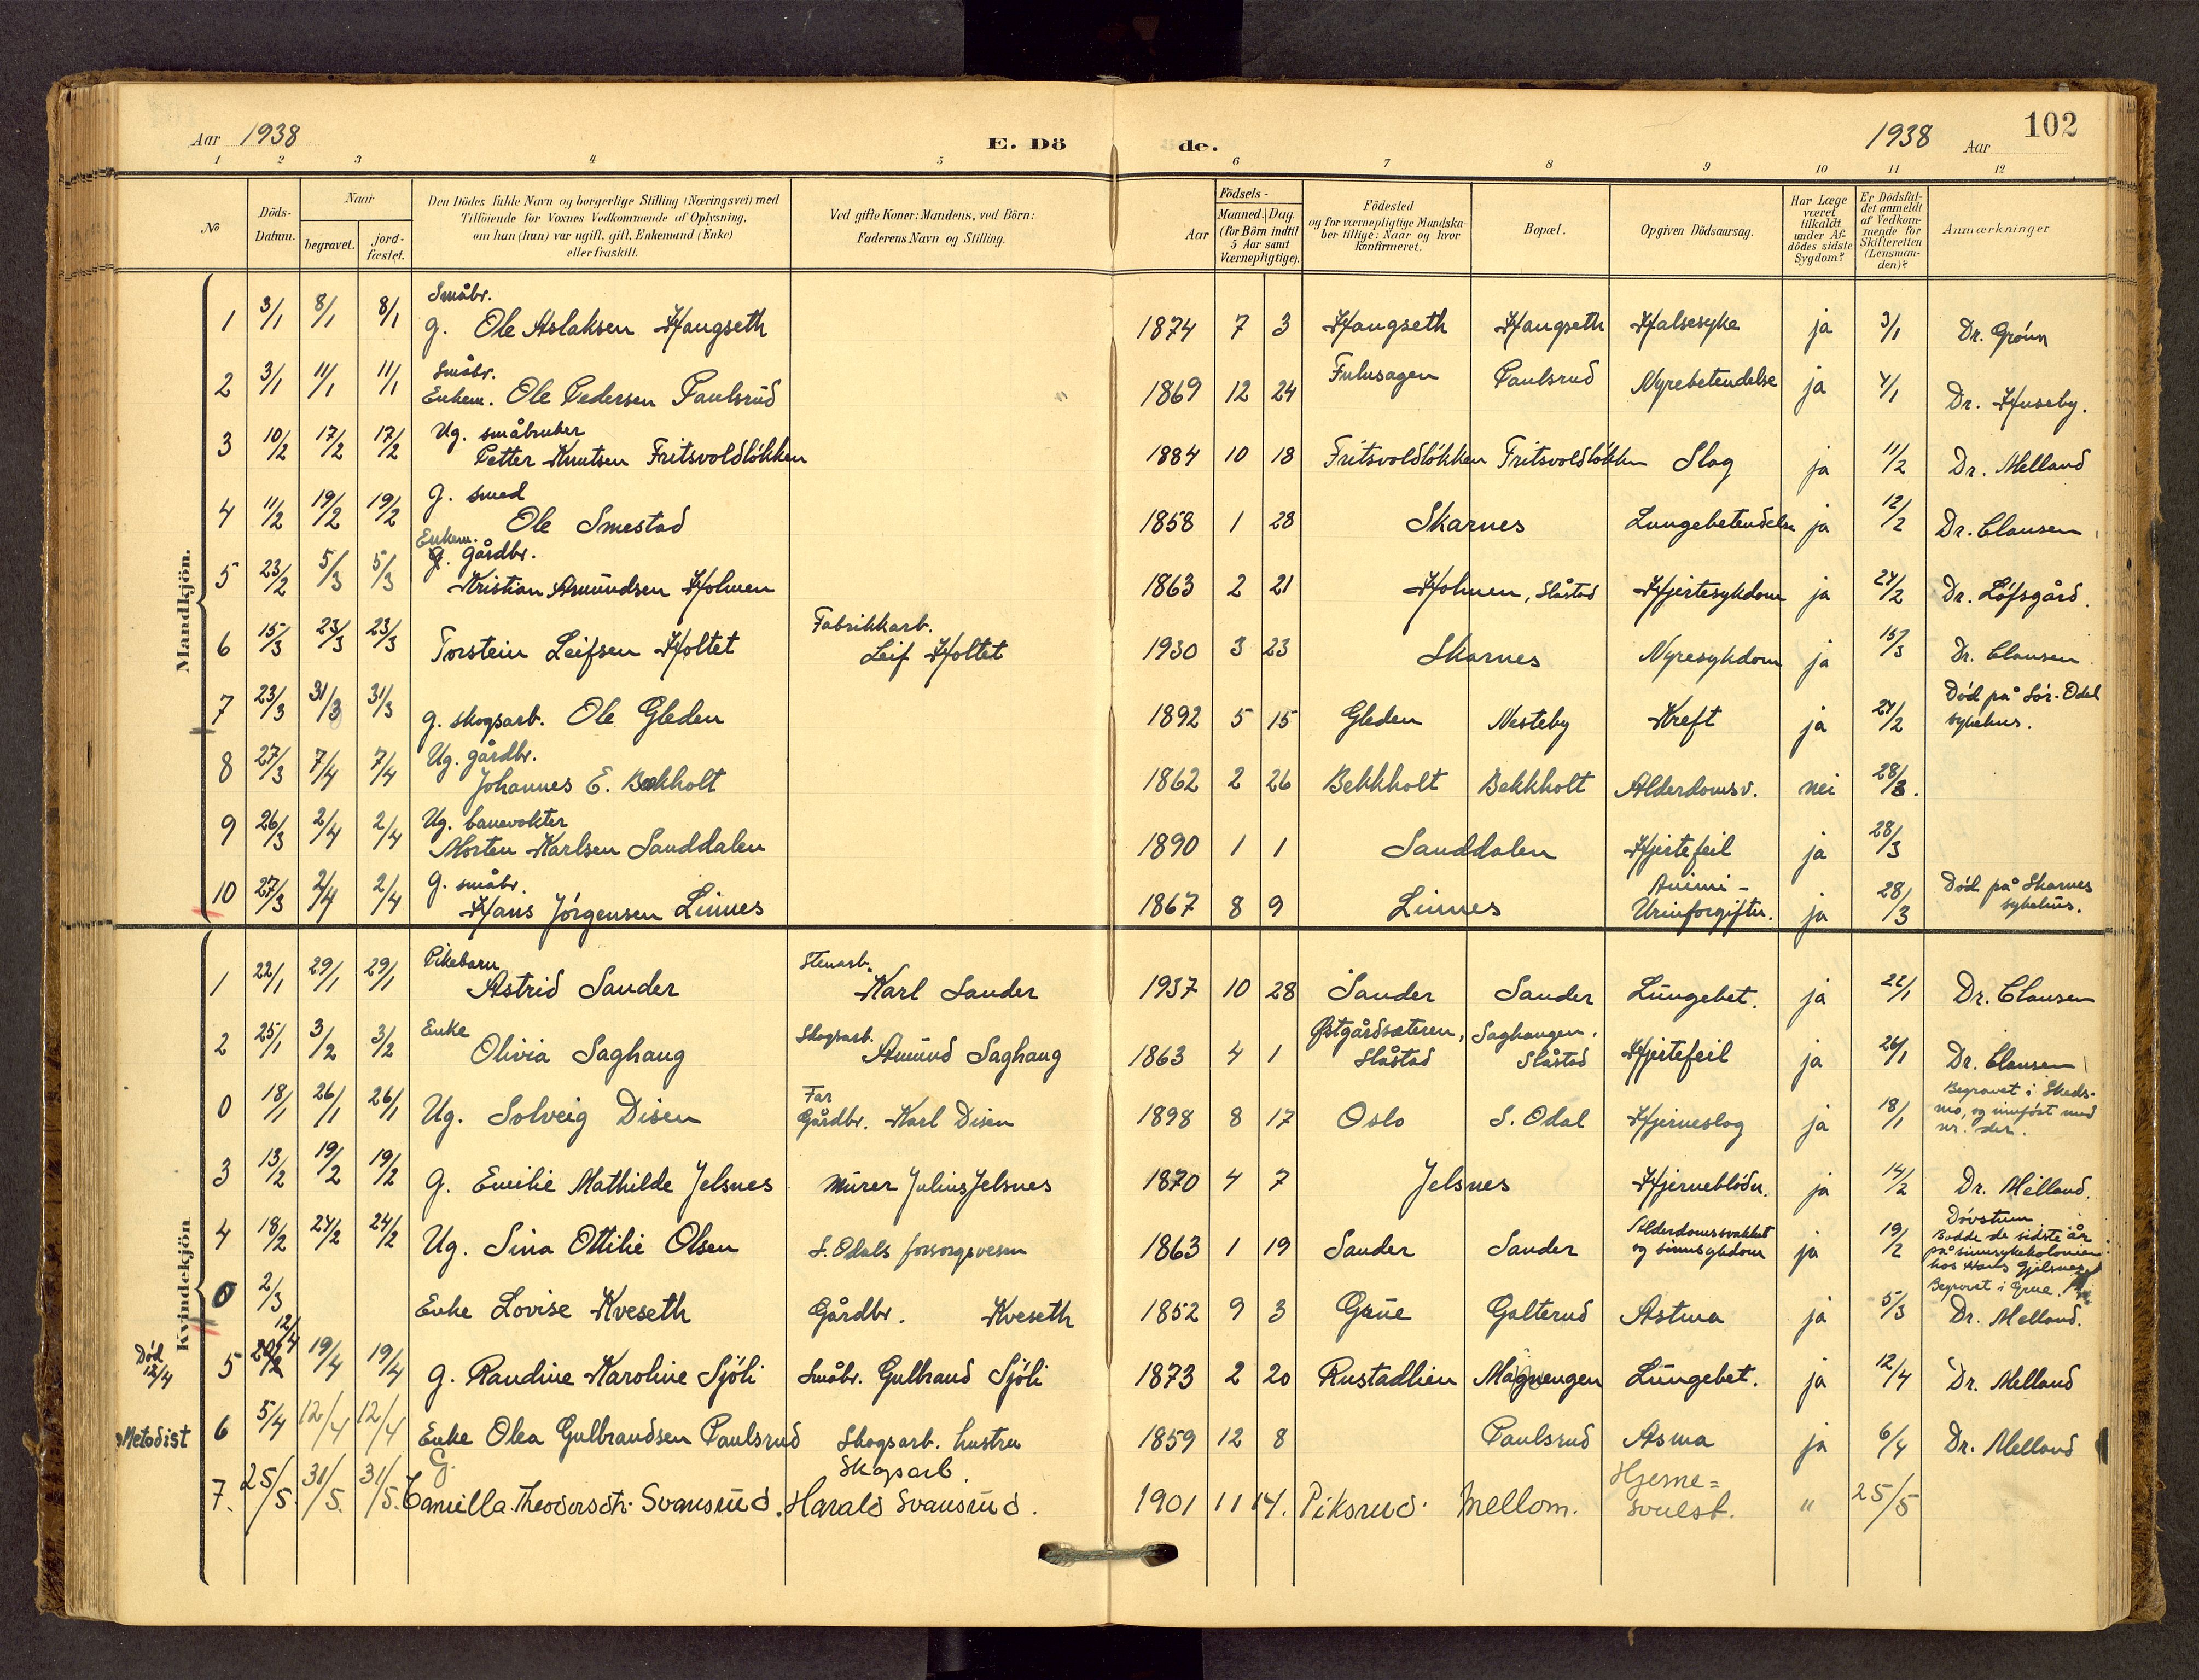 Aar 1938
E. Dö
de.
1938 Aar
102
1 2 3 4 5 6 7 8 9 10 11 12
№
Döds-
Datum.
Naar
begravet.
jord-
fæstet.
Den Dödes fulde Navn og borgerlige Stilling (Næringsvei) med
Tilföiende for Voxnes Vedkommende af Oplysning,
om han (hun) var ugift, gift, Enkemand (Enke)
eller fraskilt.
Ved gifte Koner: Mandens, ved Börn:
Faderens Navn og Stilling.
Aar
Födsels-
Maaned. Dag.
(for Börn indtil
5 Aar samt
Værnepligtige).
Födested
og for værnepligtige Mandska-
ber tillige: Naar og hvor
konfirmeret.
Bopæl.
Opgiven Dödsaarsag.
Har Læge
været
tilkaldt
under Af-
dödes sidste
Sygdom?
Er Dödsfal-
det anmeldt
af Vedkom-
mende for
Skifteretten
(Lensman-
den)?
Anmærkninger
Mandkjön.
Småbr.
1 3/1 8/1 8/1 g. Ole Aslaksen Haugseth 1874 7 3 Haugseth Haugseth Halsesyke ja 3/1 Dr. Grönn
Småbr.
2 3/1 11/1 11/1 Enkem. Ole Pedersen Paulsrud 1869 12 24 Fulusagen Paulsrud Nyrebetendelse ja 4/1 Dr. Huseby.
Ug. småbruker
3 10/2 17/2 17/2 Petter Knutsen Fritsvoldlökken 1884 10 18 Fritsvoldlökken Fritsvoldlökken Slag ja 11/2 Dr. Melland
g. smed
4 11/2 19/2 19/2 Ole Smestad 1858 1 28 Skarnes Lungebetendelse ja 12/2 Dr. Clausen
Enkem.
g. gårdbr.
5 23/2 5/3 5/3 Kristian Amundsen Holmen 1863 2 21 Holmen, Slåstad Hjertesykdom ja 24/2 Dr. Löfsgård.
Fabrikkarb.
6 15/3 23/3 23/3 Torstein Leifsen Holtet Leif Holtet 1930 3 23 Skarnes Nyresykdom ja 15/3 Dr. Clausen
Död på Sör-Odal
7 23/3 31/3 31/3 g. skogsarb. Ole Gleden 1892 5 15 Gleden Nesteby Kreft ja 24/2 sykehus.
Ug. gårdbr.
8 27/3 7/4 7/4 Johannes E. Bekkholt 1862 2 26 Bekkholt Bekkholt Alderdomsv. nei 28/3.
Ug. banevokter
9 26/3 2/4 2/4 Morten Karlsen Sanddalen 1890 1 1 Sanddalen Hjertefeil ja 28/3
g. småbr. Död på Skarnes
10 27/3 2/4 2/4 Hans Jörgensen Linnes 1867 8 9 Linnes Urinforgiftn. ja 28/3 sykehus.
Kvindekjön
Pikebarn Stenarb.
1 22/1 29/1 29/1 Astrid Sander Karl Sander 1937 10 28 Sander Sander Lungebet. ja 22/1 Dr. Clausen
Enke Skogsarb. Østgårdsæteren, Saghaugen,
2 25/1 3/2 3/2 Olivia Saghaug Amund Saghaug 1863 4 1 Slåstad Slåstad Hjertefeil ja 26/1 Dr. Clausen
Far Begravet i Skeds-
0 18/1 26/1 26/1 Ug. Solveig Disen Gårdbr. Karl Disen 1898 8 17 Oslo S. Odal Hjerneslag ja 18/1 mo, og innfört med
nr. der.
3 13/2 19/2 19/2 g. Emilie Mathilde Jelsnes Murer Julius Jelsnes 1870 4 7 Jelsnes Hjerneblödn. ja 14/2 Dr. Melland.
Alderdomssvakhet Dövstum
4 18/2 24/2 24/2 Ug. Sina Ottilie Olsen S. Odals forsorgsvesen 1863 1 19 Sander Sander og sinnsykdom ja 19/2 Bodde de sidste år
på sinnsykekolonien
hos Hans Gjelsnes
Begravet i Grue.
0 2/3 Enke Lovise Kveseth Gårdbr. Kveseth 1852 9 3 Grue Galterud Astma ja 5/3 Dr. Melland.
Död
12/4
12/4
5 20/2 19/4 19/4 g. Randine Karoline Sjöli Småbr. Gulbrand Sjöli 1873 2 20 Rustadlien Magnengen Lungebet. ja 12/4 Dr. Melland
Metodist 6 5/4 12/4 12/4 Enke Olea Gulbrandsen Paulsrud Skogsarb. hustru 1859 12 8 Paulsrud Asma ja 6/4 Dr. Melland
G. Skogsarb. Hjerne=
7. 25/5. 31/5. 31/5. Camilla Theodorsdtr. Svansrud. Harald Svansrud. 1901 11 14. Piksrud Mellom. svulst. " 25/5